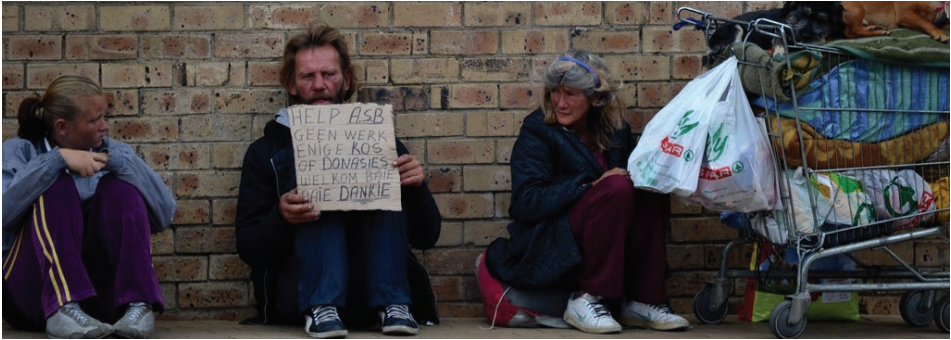 HELP ASB
GEEN WERK
ENIGE KOS
OF DONASIES
WELKOM BAIE
BAIE DANKIE
SPAR